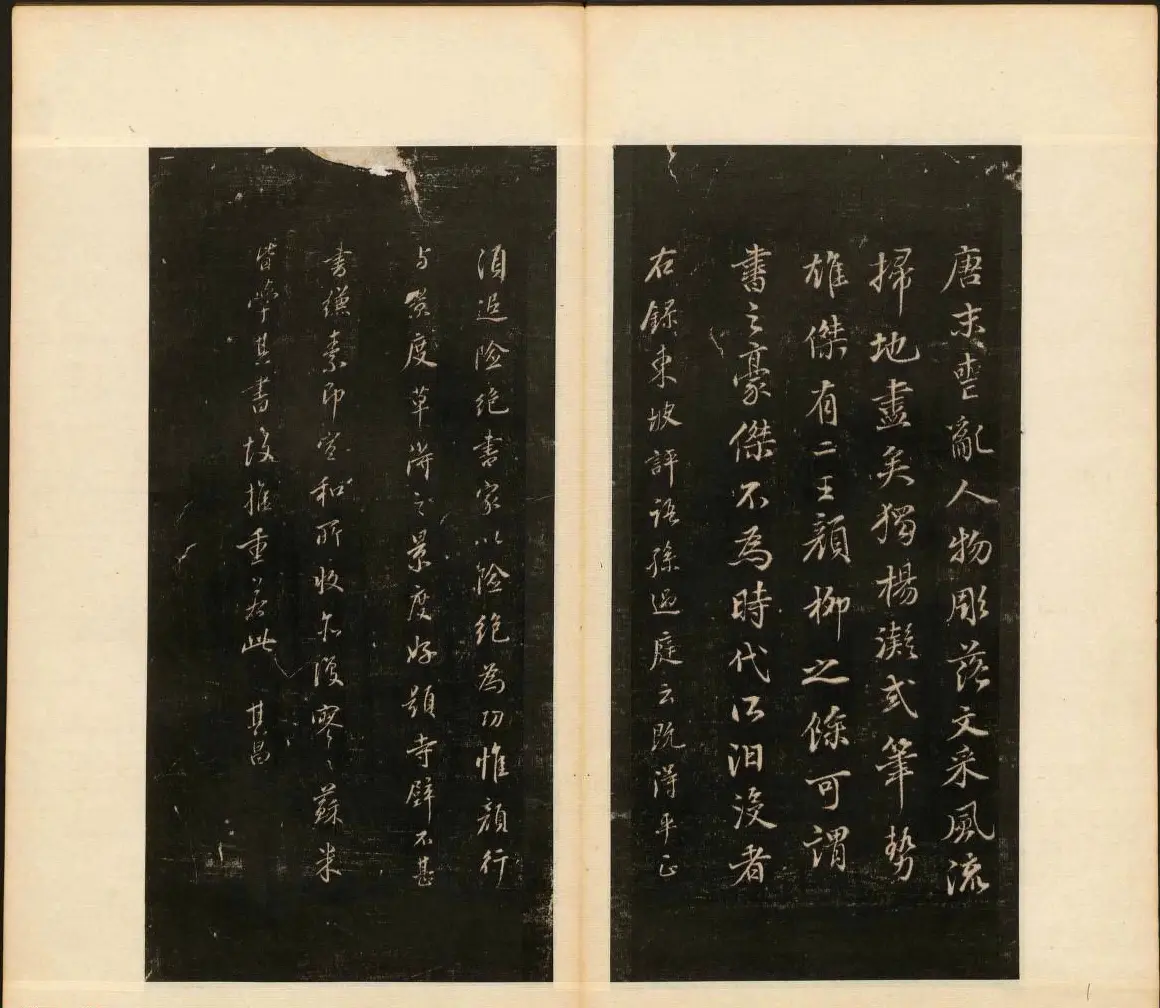 唐末喪亂人物彫落文采風流
掃地盡矣獨楊凝式筆勢
雄傑有二王顏柳之餘可謂
書之豪傑不為時代所汨沒者
右錄東坡評語孫過庭云既得平正
須追險絕書家以險絕為功惟顏行
与景度草得之景度好題寺壁不甚
書縑素即宣和所收尔復寥々蘇米
皆學其書故推重若此 其昌